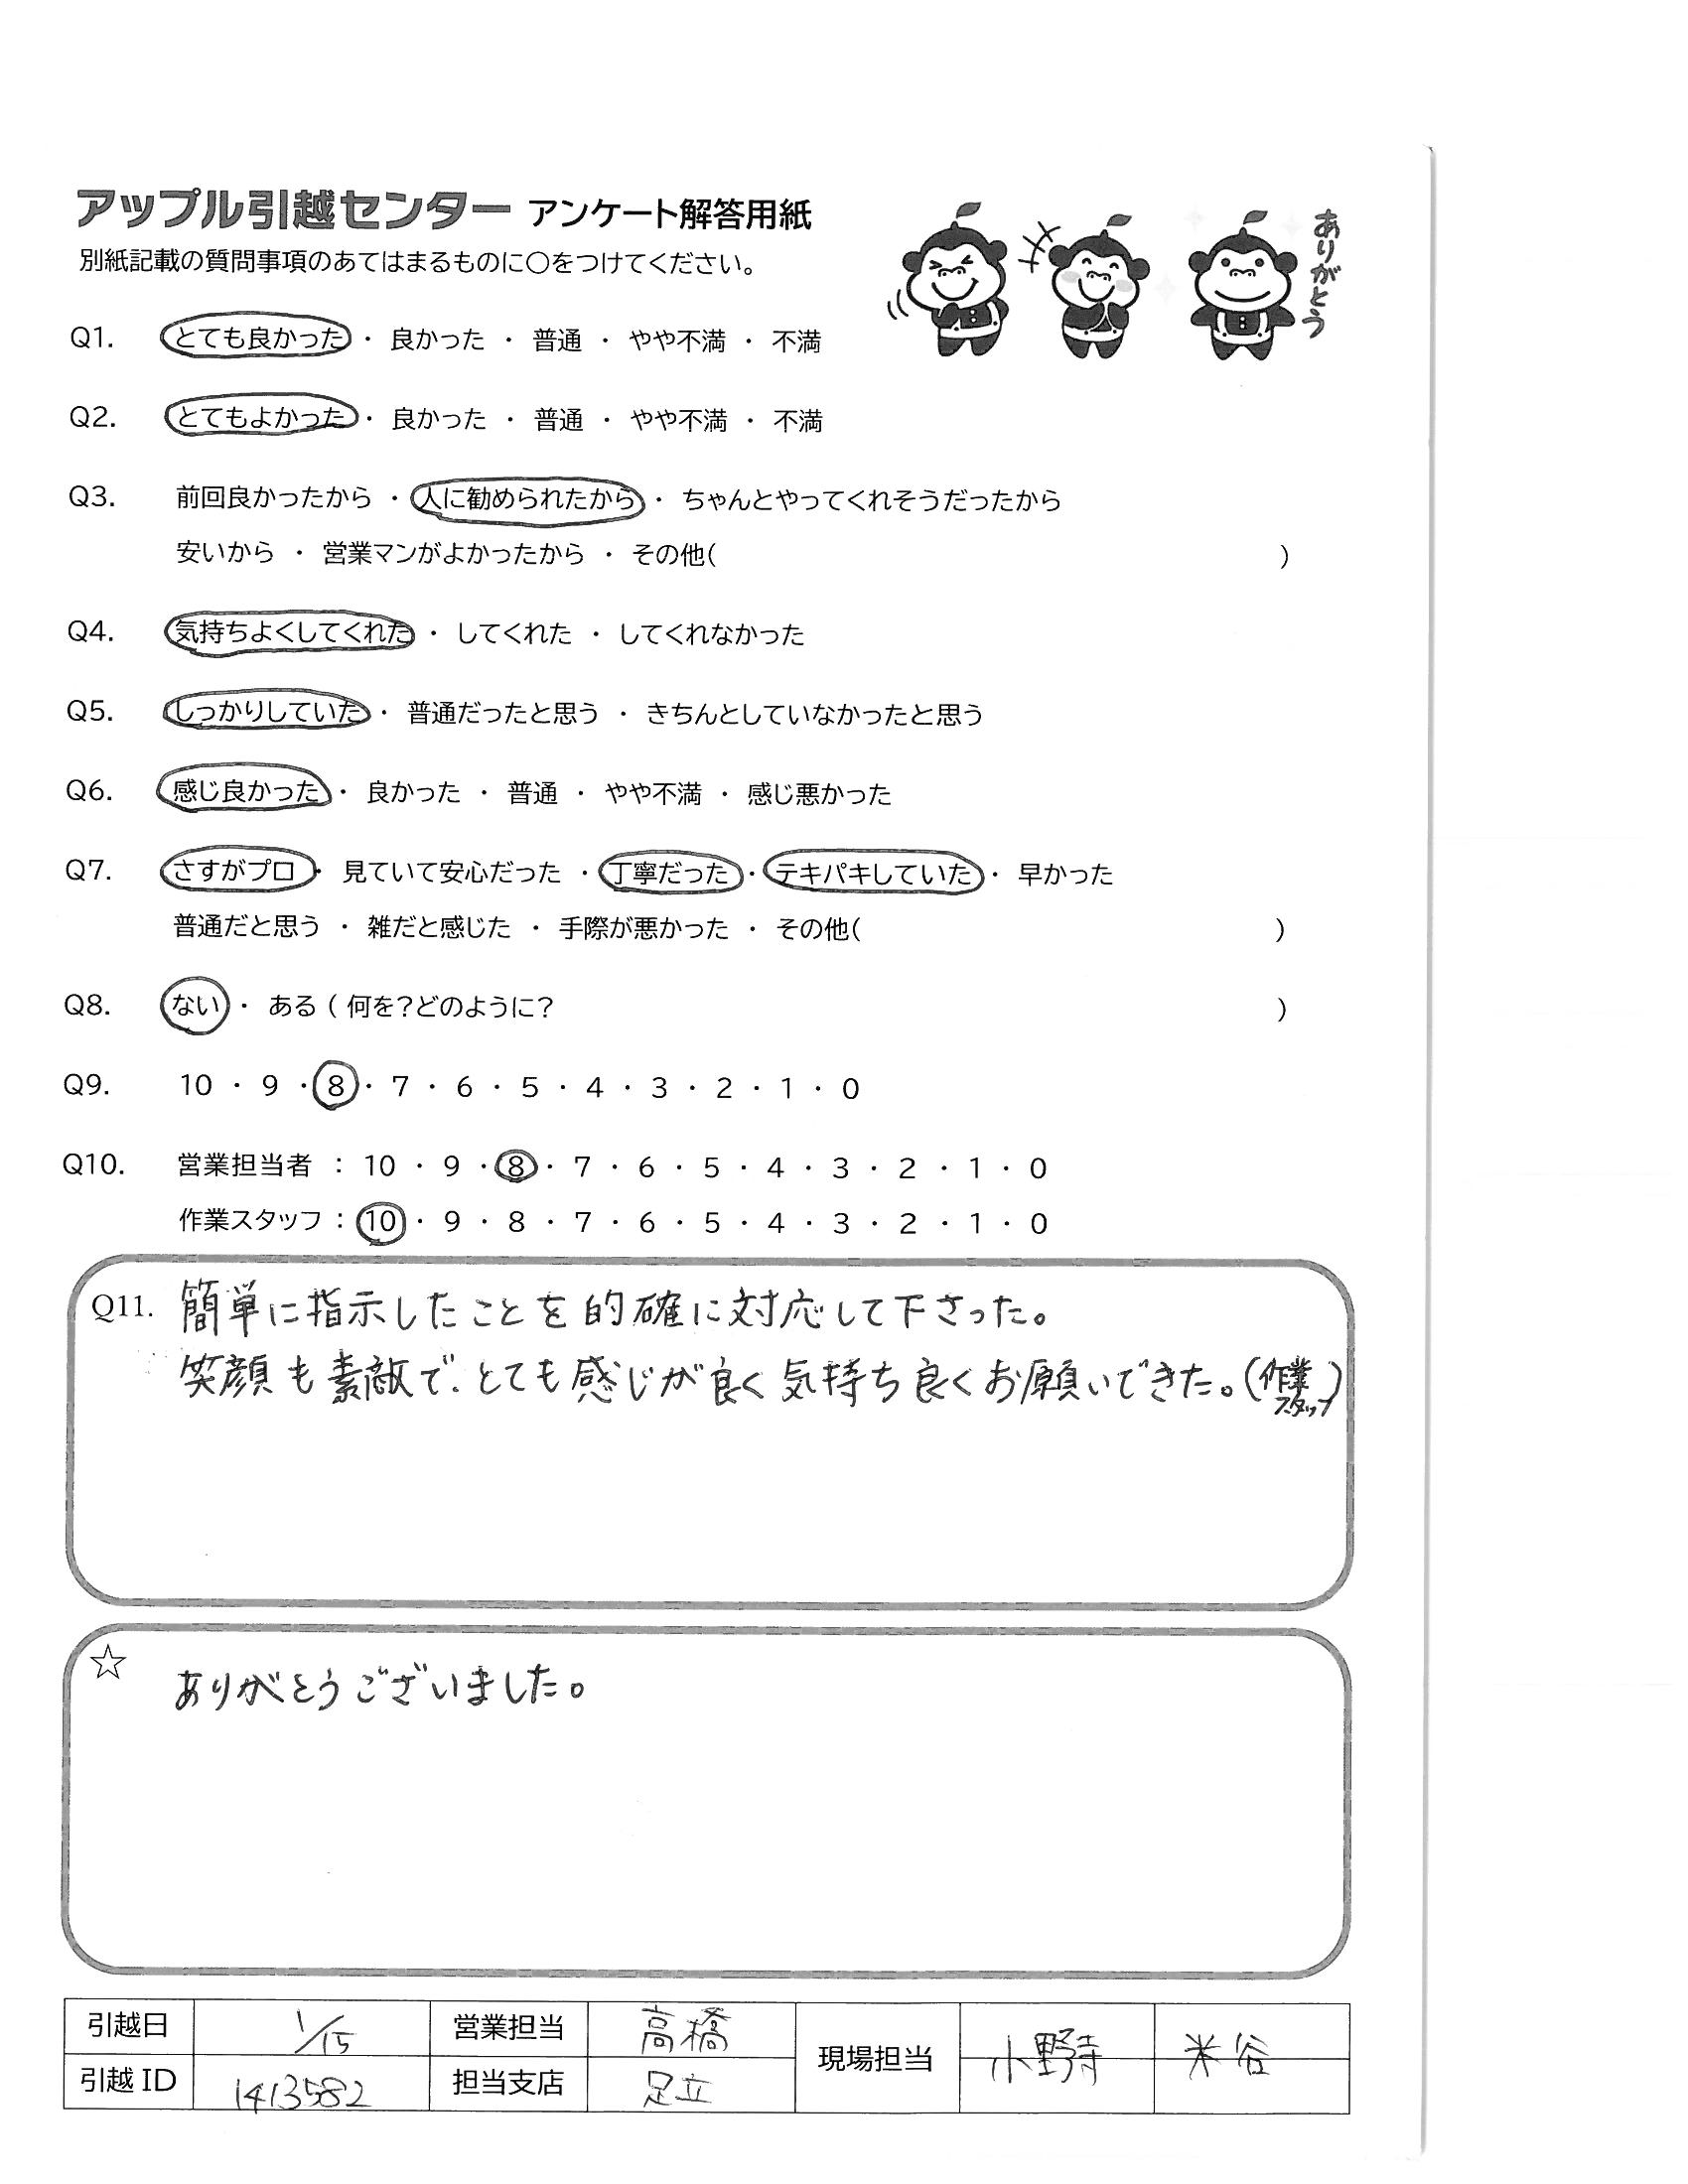 アップル引越センター アンケート解答用紙
ありがとう
別紙記載の質問事項のあてはまるものに〇をつけてください。
Q1. とても良かった ・ 良かった ・ 普通 ・ やや不満 ・ 不満
Q2. とてもよかった ・ 良かった ・ 普通 ・ やや不満 ・ 不満
Q3. 前回良かったから ・ 人に勧められたから ・ ちゃんとやってくれそうだったから
安いから ・ 営業マンがよかったから ・ その他( )
Q4. 気持ちよくしてくれた ・ してくれた ・ してくれなかった
Q5. しっかりしていた ・ 普通だったと思う ・ きちんとしていなかったと思う
Q6. 感じ良かった ・ 良かった ・ 普通 ・ やや不満 ・ 感じ悪かった
Q7. さすがプロ ・ 見ていて安心だった ・ 丁寧だった ・ テキパキしていた ・ 早かった
普通だと思う ・ 雑だと感じた ・ 手際が悪かった ・ その他( )
Q8. ない ・ ある ( 何を?どのように? )
Q9. 10 ・ 9 ・ 8 ・ 7 ・ 6 ・ 5 ・ 4 ・ 3 ・ 2 ・ 1 ・ 0
Q10. 営業担当者 : 10 ・ 9 ・ 8 ・ 7 ・ 6 ・ 5 ・ 4 ・ 3 ・ 2 ・ 1 ・ 0
作業スタッフ : 10 ・ 9 ・ 8 ・ 7 ・ 6 ・ 5 ・ 4 ・ 3 ・ 2 ・ 1 ・ 0
Q11. 簡単に指示したことを的確に対応して下さった。
笑顔も素敵で、とても感じが良く気持ち良くお願いできた。(作業スタッフ)
☆ ありがとうございました。
引越日 1/15 営業担当 高橋 現場担当 小野寺 米谷
引越 ID 1413582 担当支店 足立